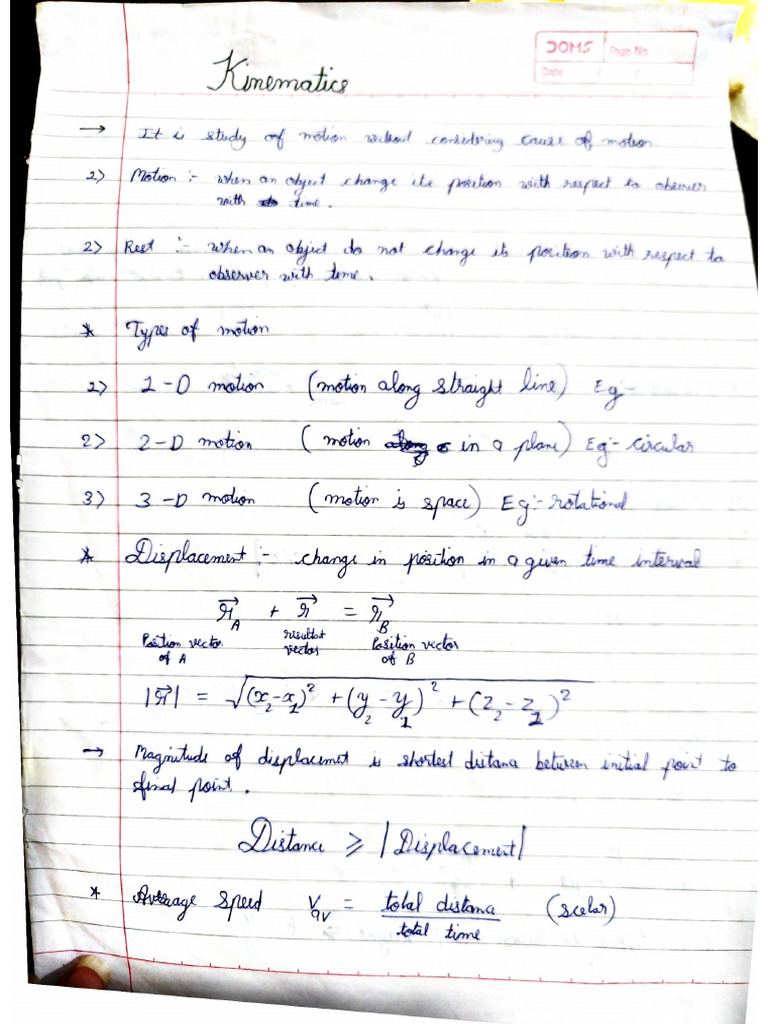 DOMS Page No.
Date / /
Kinematics
→ It is study of motion without considering cause of motion
1) Motion :- when an object change its position with respect to observer
with time.
2) Rest :- when an object do not change its position with respect to
observer with time.
* Types of motion
1) 1-D motion (motion along straight line) Eg-
2) 2-D motion (motion in a plane) Eg:- circular
3) 3-D motion (motion is space) Eg:- rotational
* Displacement :- change in position in a given time interval
r⃗_A + r⃗ = r⃗_B
Position vector of A resultat vector Position vector of B
|r⃗| = √((x₂-x₁)² + (y₂-y₁)² + (z₂-z₁)²)
→ Magnitude of displacemt is shortest distana between initial point to
final point.
Distance ⩾ |Displacement|
* Average speed V_av = total distana / total time (scelar)